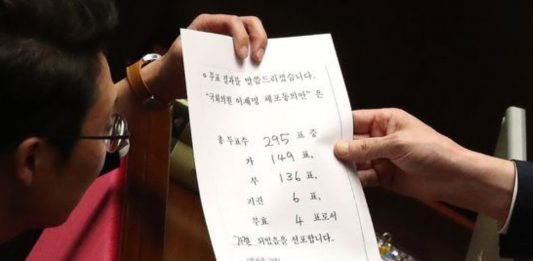 ○ 투표 결과를 말씀드리겠습니다.
"국회의원 이재명 체포동의안"은
총 투표수 295 표 중
가 149 표,
부 136 표,
기권 6 표,
무효 4 표로서
가결 되었음을 선포합니다.